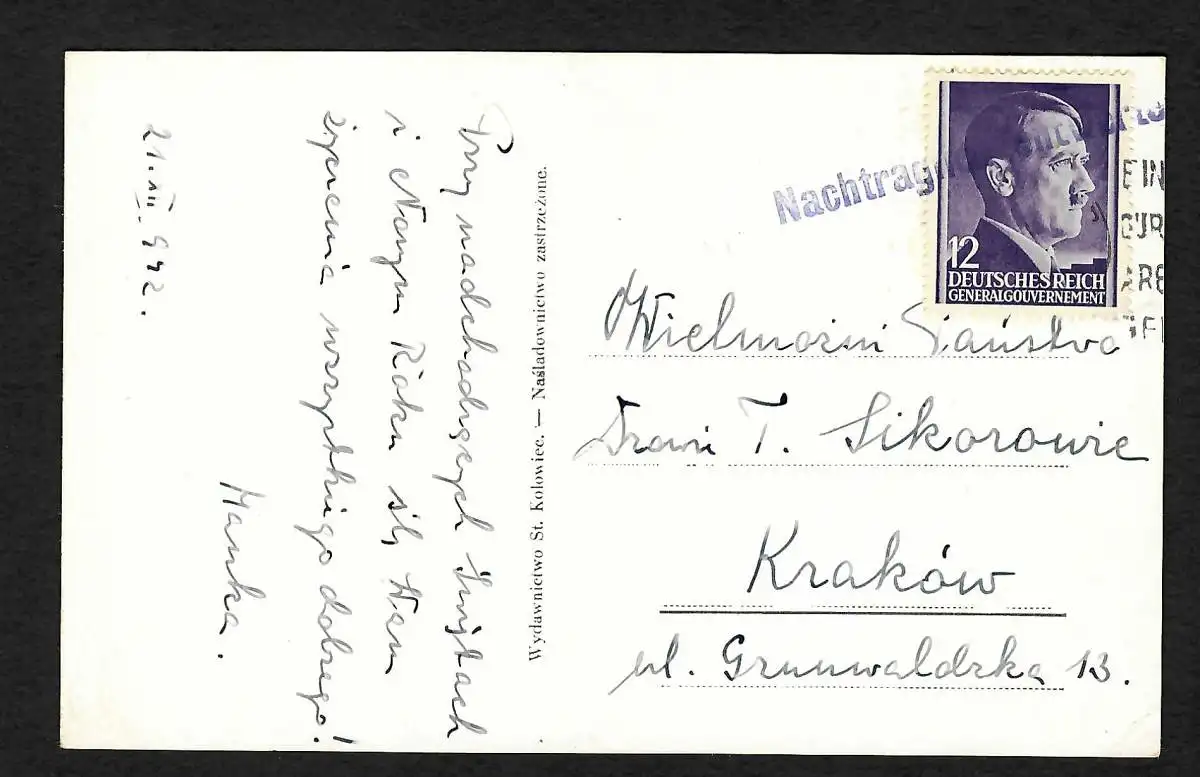 Przy nadchodzących Świętach
i Nowym Roku ślę Wam
życzenia wszystkiego dobrego!
Hanka.
21.XII.942.
Wydawnictwo St. Kołowiec. — Naśladownictwo zastrzeżone.
Nachträg
12
DEUTSCHES REICH
GENERALGOUVERNEMENT
EIN
ARE
Wielmożni Państwo
T. Sikorowie
Kraków
ul. Grunwaldzka 13.